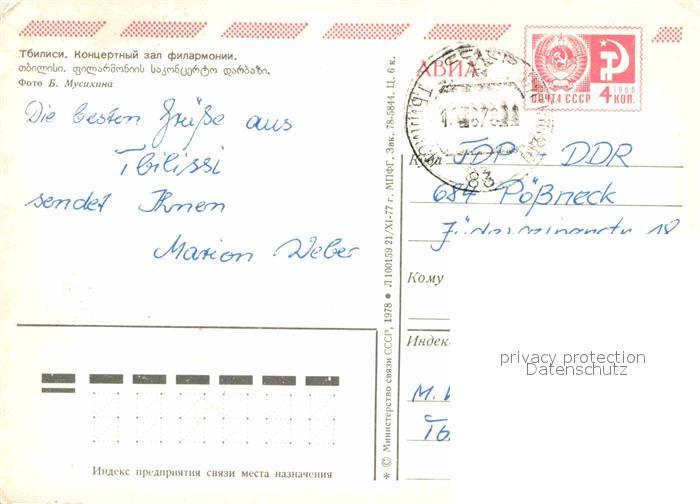 Тбилиси. Концертный зал филармонии.
თბილისი. ფილარმონიის საკონცერტო დარბაზი.
Фото Б. Мусихина
АВИА
1966
ПОЧТА СССР 4 КОП.
83
Die besten Grüße aus
Tbilissi
sendet Ihnen
Marion Weber
Куда ГДР - DDR
684 Pößneck
18
Кому
Индекс
privacy protection
Datenschutz
М.
Индекс предприятия связи места назначения
* © Министерство связи СССР, 1978 • Л 100159 21/XI-77 г. МПФГ. Зак. 78-5844. Ц. 6 к.